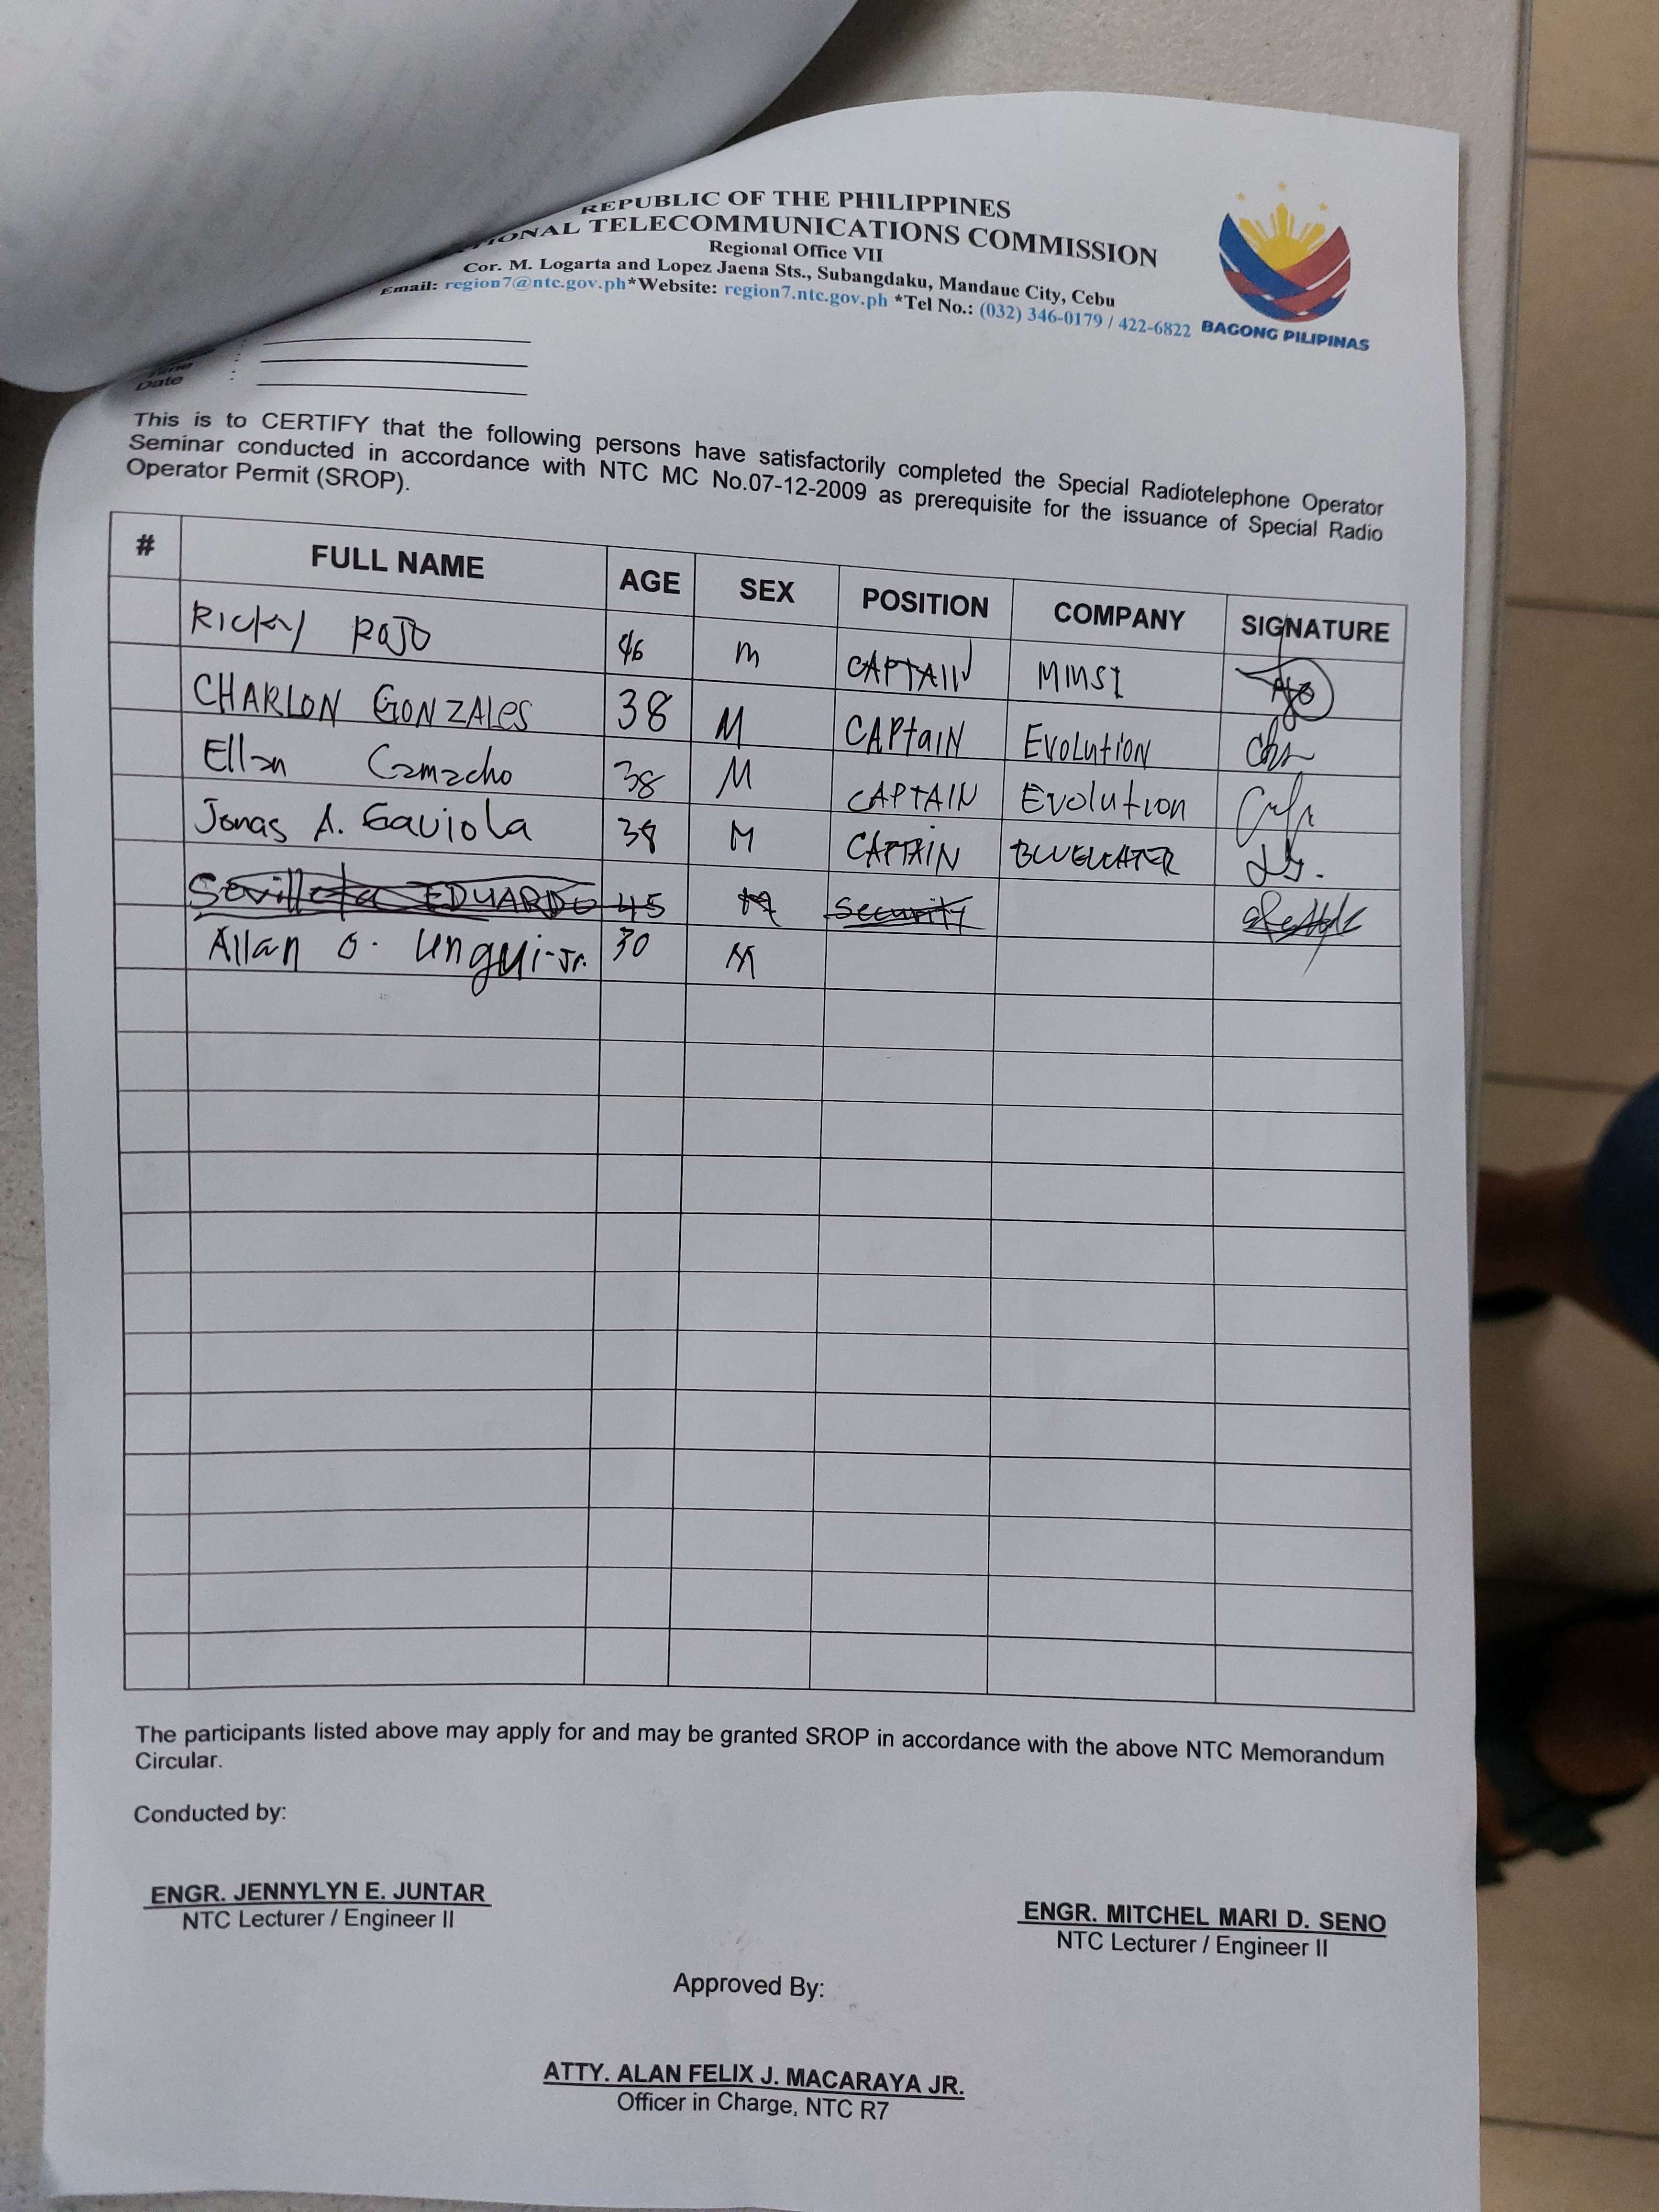 REPUBLIC OF THE PHILIPPINES
TELECOMMUNICATIONS COMMISSION
Regional Office VII
Cor. M. Logarta and Lopez Jaena Sts., Subangdaku, Mandaue City, Cebu
Email: region7@ntc.gov.ph*Website: region7.ntc.gov.ph *Tel No.: (032) 346-0179 / 422-6822
BAGONG PILIPINAS
Date :
This is to CERTIFY that the following persons have satisfactorily completed the Special Radiotelephone Operator
Seminar conducted in accordance with NTC MC No.07-12-2009 as prerequisite for the issuance of Special Radio
Operator Permit (SROP).
# FULL NAME AGE SEX POSITION COMPANY SIGNATURE
Ricky 46 m CAPTAIN MMSI
CHARLON GONZALES 38 M CAPtAIN EvoLution
Ellan Camacho 38 M CAPTAIN Evolution
Jonas A. Gaviola 38 M CAPTAIN BLUEWATER
EDUARDO 45 M Security
Allan O. Ungui-Jr. 30 M
The participants listed above may apply for and may be granted SROP in accordance with the above NTC Memorandum
Circular.
Conducted by:
ENGR. JENNYLYN E. JUNTAR
NTC Lecturer / Engineer II
ENGR. MITCHEL MARI D. SENO
NTC Lecturer / Engineer II
Approved By:
ATTY. ALAN FELIX J. MACARAYA JR.
Officer in Charge, NTC R7